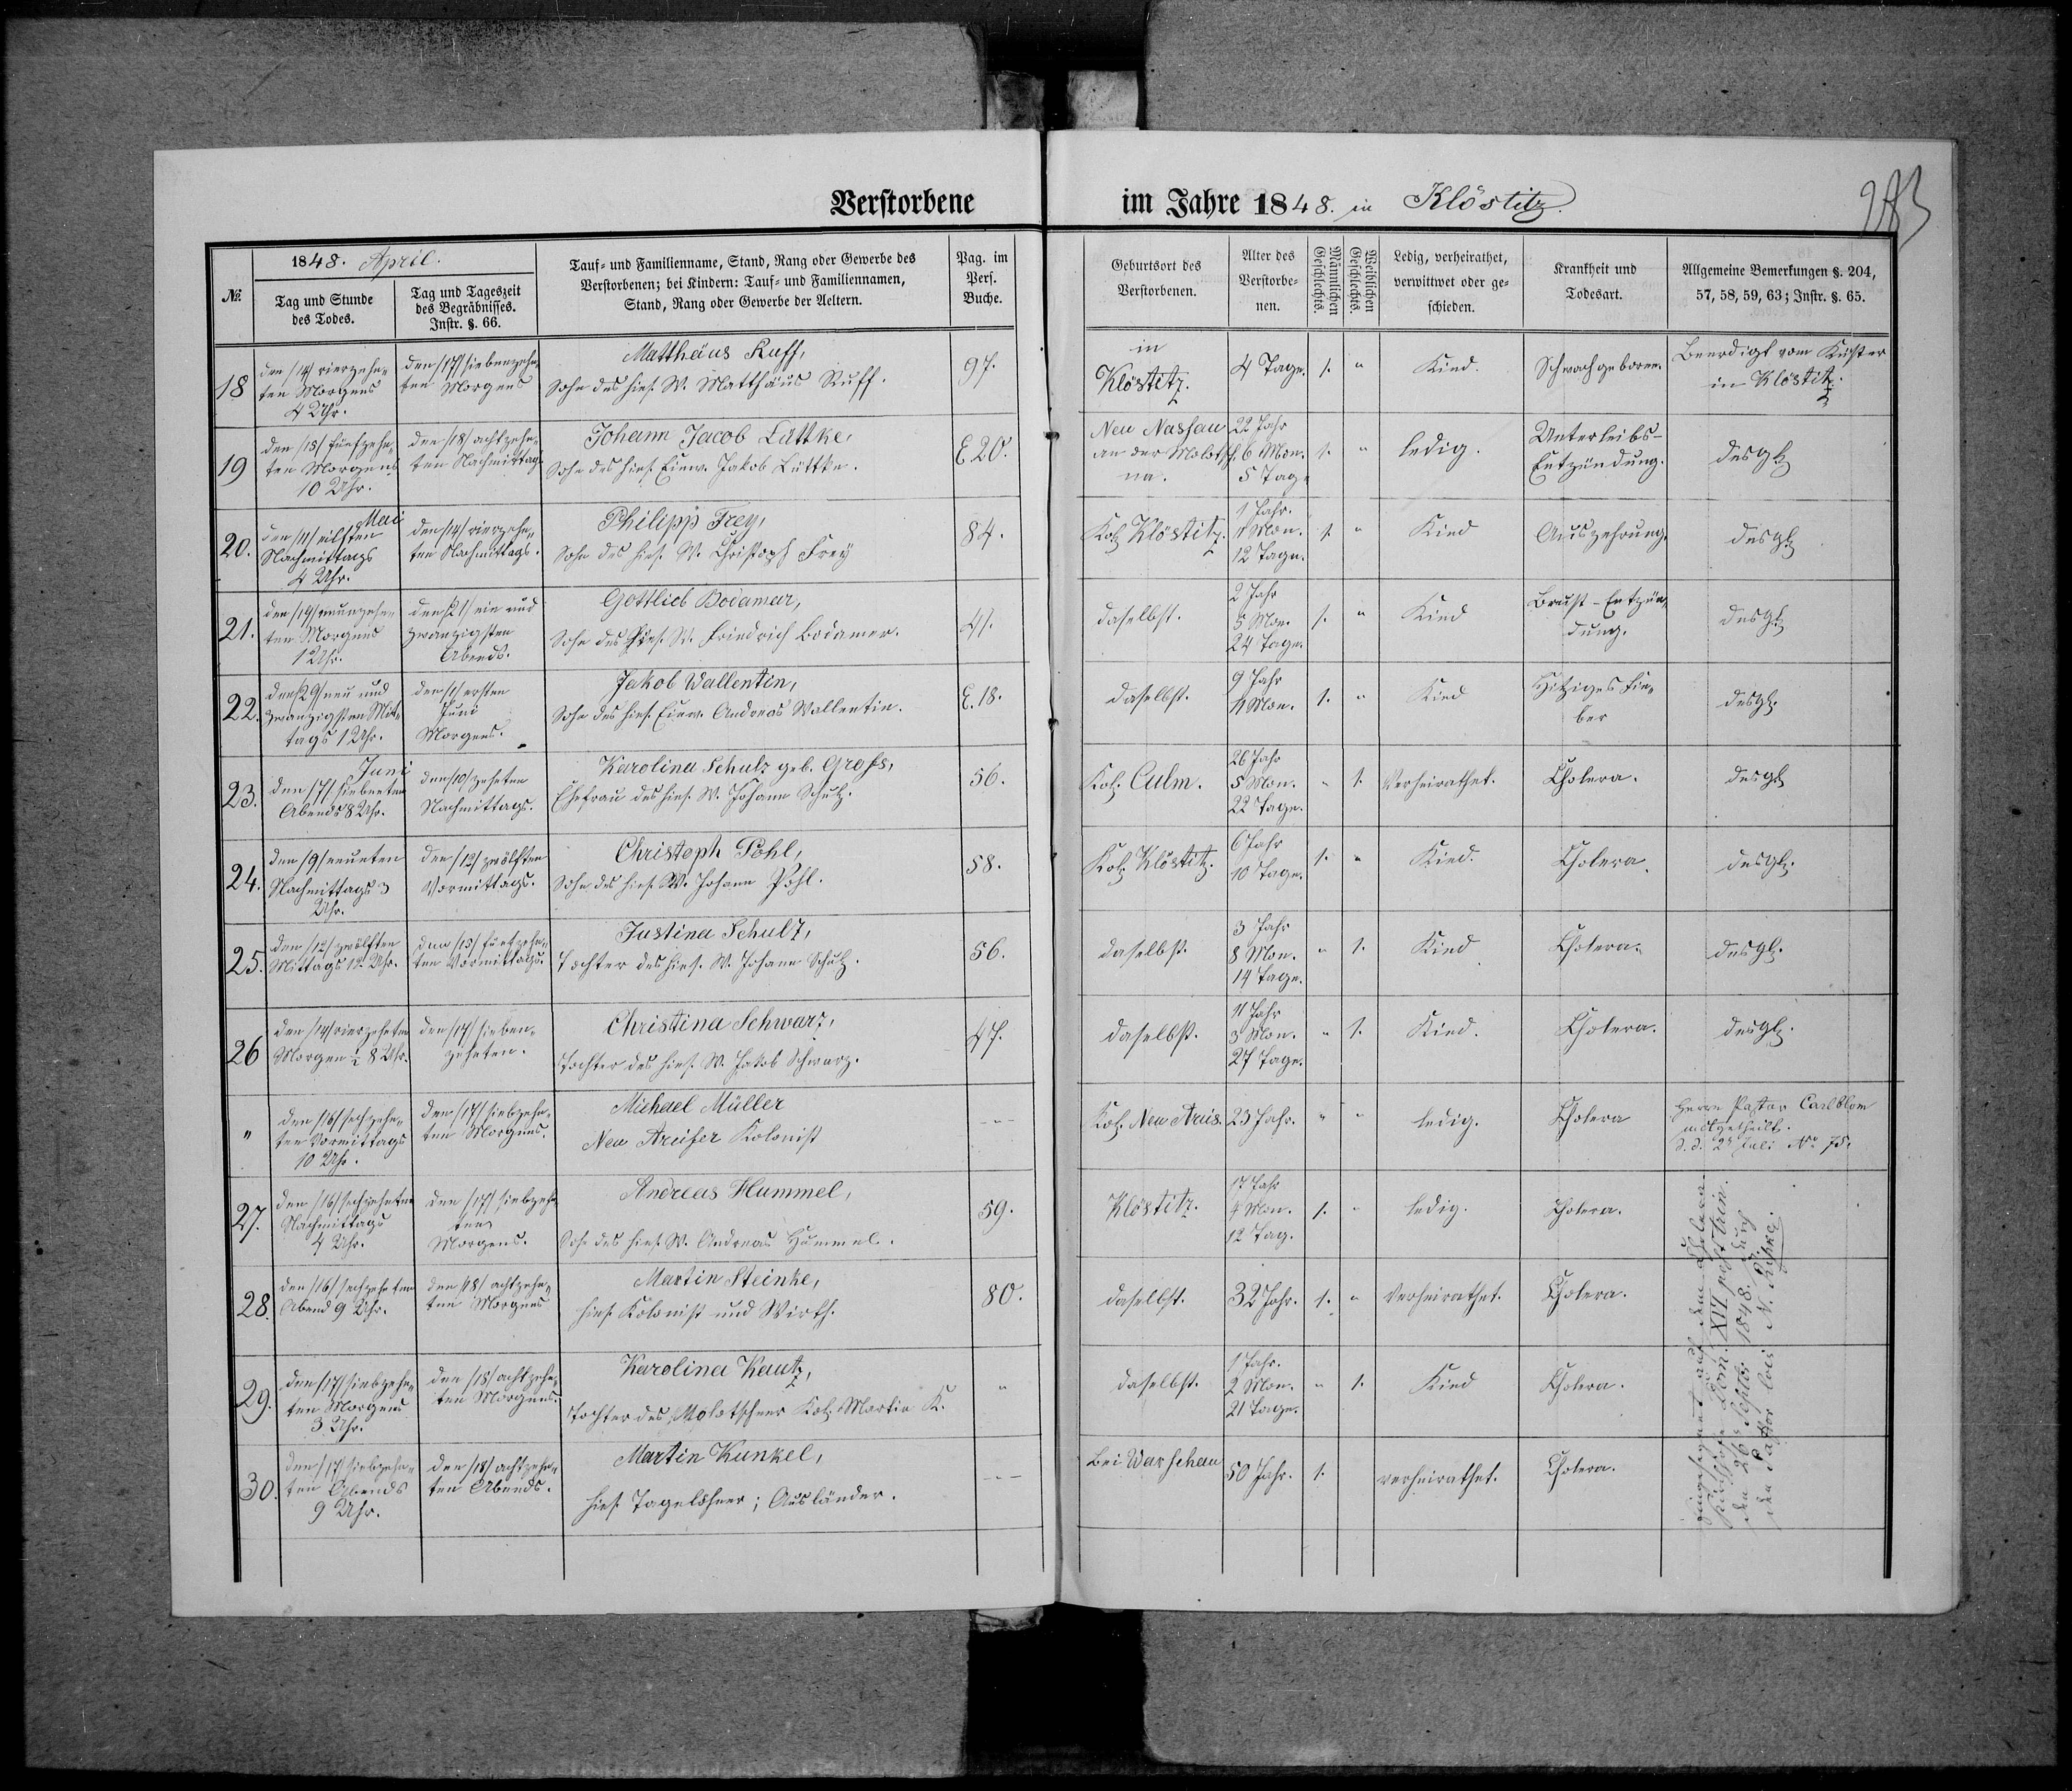 Verstorbene im Jahre 1848. in Klöstitz.
283
№
1848. April.
Tag und Stunde
des Todes.
Tag und Tageszeit
des Begräbnisses.
Instr. §. 66.
Tauf- und Familienname, Stand, Rang oder Gewerbe des
Verstorbenen; bei Kindern: Tauf- und Familiennamen,
Stand, Rang oder Gewerbe der Aeltern.
Pag. im
Pers.
Buche.
Geburtsort des
Verstorbenen.
Alter des
Verstorbe-
nen.
Männlichen
Geschlechts.
Weiblichen
Geschlechts.
Ledig, verheirathet,
verwittwet oder ge-
schieden.
Krankheit und
Todesart.
Allgemeine Bemerkungen §. 204,
57, 58, 59, 63; Instr. §. 65.
18
den /14/ vierzehn-
ten Morgens
4 Uhr.
den /17/ siebenzehn-
ten Morgens
Matthäus Ruff,
Sohn des hies. W. Matthäus Ruff.
97.
in
Klöstitz.
4 Tage.
1.
"
Kind.
Schwachgeboren.
Beerdigt vom Küster
in Klöstitz.
19
den /15/ fünfzehn-
ten Morgens
10 Uhr.
den /18/ achtzehn-
ten Nachmittag
Johann Jacob Lüttke,
Sohn des hies. Einw. Jakob Lüttke.
E 20.
Neu Nassau
an der Molotsch-
na.
22 Jahr
6 Mon.
5 Tag.
1.
"
ledig.
Unterleibs-
Entzündung.
desgl.
20.
Mai
den /11/ eilften
Nachmittags
4 Uhr.
den /14/ vierzehn-
ten Nachmittags.
Philipp Frey,
Sohn des hies. W. Christoph Frey
84.
Kol. Klöstitz.
1 Jahr.
11 Mon.
12 Tage.
1.
"
Kind
Auszehrung.
desgl.
21.
den /19/ neunzehn-
ten Morgens
1 Uhr.
den /21/ ein und
zwanzigsten
Abends.
Gottlieb Bodamer,
Sohn des hies. W. Friedrich Bodamer.
41.
daselbst.
2 Jahr
5 Mon.
24 Tage.
1.
"
Kind
Brust-Entzün-
dung.
desgl.
22.
den /29/ neun und
zwanzigsten Mit-
tags 1 Uhr.
den /1/ ersten
Juni
Morgens.
Jakob Wallentin,
Sohn des hies. Einw. Andreas Wallentin.
E. 18.
daselbst.
9 Jahr
11 Mon.
1.
"
Kind
Hitziges Fie-
ber
desgl.
23.
Juni
den /7/ siebenten
Abends 8 Uhr.
den /10/ zehnten
Nachmittags.
Karolina Schulz geb. Groß,
Ehefrau des hies. W. Johann Schulz.
56.
Kol. Culm.
26 Jahr
5 Mon.
22 Tage.
"
1.
Verheirathet.
Cholera.
desgl.
24.
den /9/ neunten
Nachmittags 3
Uhr.
den /12/ zwölften
Vormittags.
Christoph Pohl,
Sohn des hies. W. Johann Pohl.
58.
Kol. Klöstitz.
6 Jahr
10 Tage.
1.
"
Kind.
Cholera.
desgl.
25.
den /12/ zwölften
Mittags 12 Uhr.
den /15/ fünfzehn-
ten Vormittags.
Justina Schulz,
Tochter des hies. W. Johann Schulz.
56.
daselbst.
3 Jahr
8 Mon.
14 Tage.
"
1.
Kind
Cholera.
desgl.
26
den /14/ vierzehnten
Morgen ½ 8 Uhr.
den /17/ sieben-
zehnten.
Christina Schwarz,
Tochter des hies. W. Jakob Schwarz.
47.
daselbst.
11 Jahr
3 Mon.
27 Tage.
"
1.
Kind.
Cholera.
desgl.
"
den /16/ sechzehn-
ten Vormittags
10 Uhr.
den /17/ siebzehn-
ten Morgens.
Michael Müller
Neu Arciser Kolonist
---
Kol. Neu Arcis.
23 Jahr.
"
"
ledig.
Cholera
Herrn Pastor Carlblom
mitgetheilt.
d. d. 2t Juli No 75.
27.
den /16/ sechzehnten
Nachmittags
4 Uhr.
den /17/ siebzehn-
ten
Morgens.
Andreas Hummel,
Sohn des hies. W. Andreas Hummel.
59.
Klöstitz.
17 Jahr
4 Mon.
12 Tag.
1.
"
ledig.
Cholera.
28.
den /16/ sechzehnten
Abend 9 Uhr.
den /18/ achtzehn-
ten Morgens
Martin Steinke,
hies. Kolonist und Wirth.
80.
daselbst.
32 Jahr.
1.
"
Verheirathet.
Cholera.
29.
den /17/ siebzehn-
ten Morgens
3 Uhr.
den /18/ achtzehn-
ten Morgens.
Karolina Kautz,
Tochter des Molotschner Kol. Martin K.
"
daselbst.
1 Jahr.
2 Mon.
21 Tage.
"
1.
Kind
Cholera.
30.
den /17/ siebzehn-
ten Abends
9 Uhr.
den /18/ achtzehn-
ten Abends.
Martin Kunkel,
hies. Tagelöhner; Ausländer.
---
Bei Warschau
50 Jahr.
1.
verheirathet.
Cholera.
eingesegnet auf dem Cholera-
Kirchhofe Dom. XIV post trin.
den 26 1848. durch
den Pastor loci